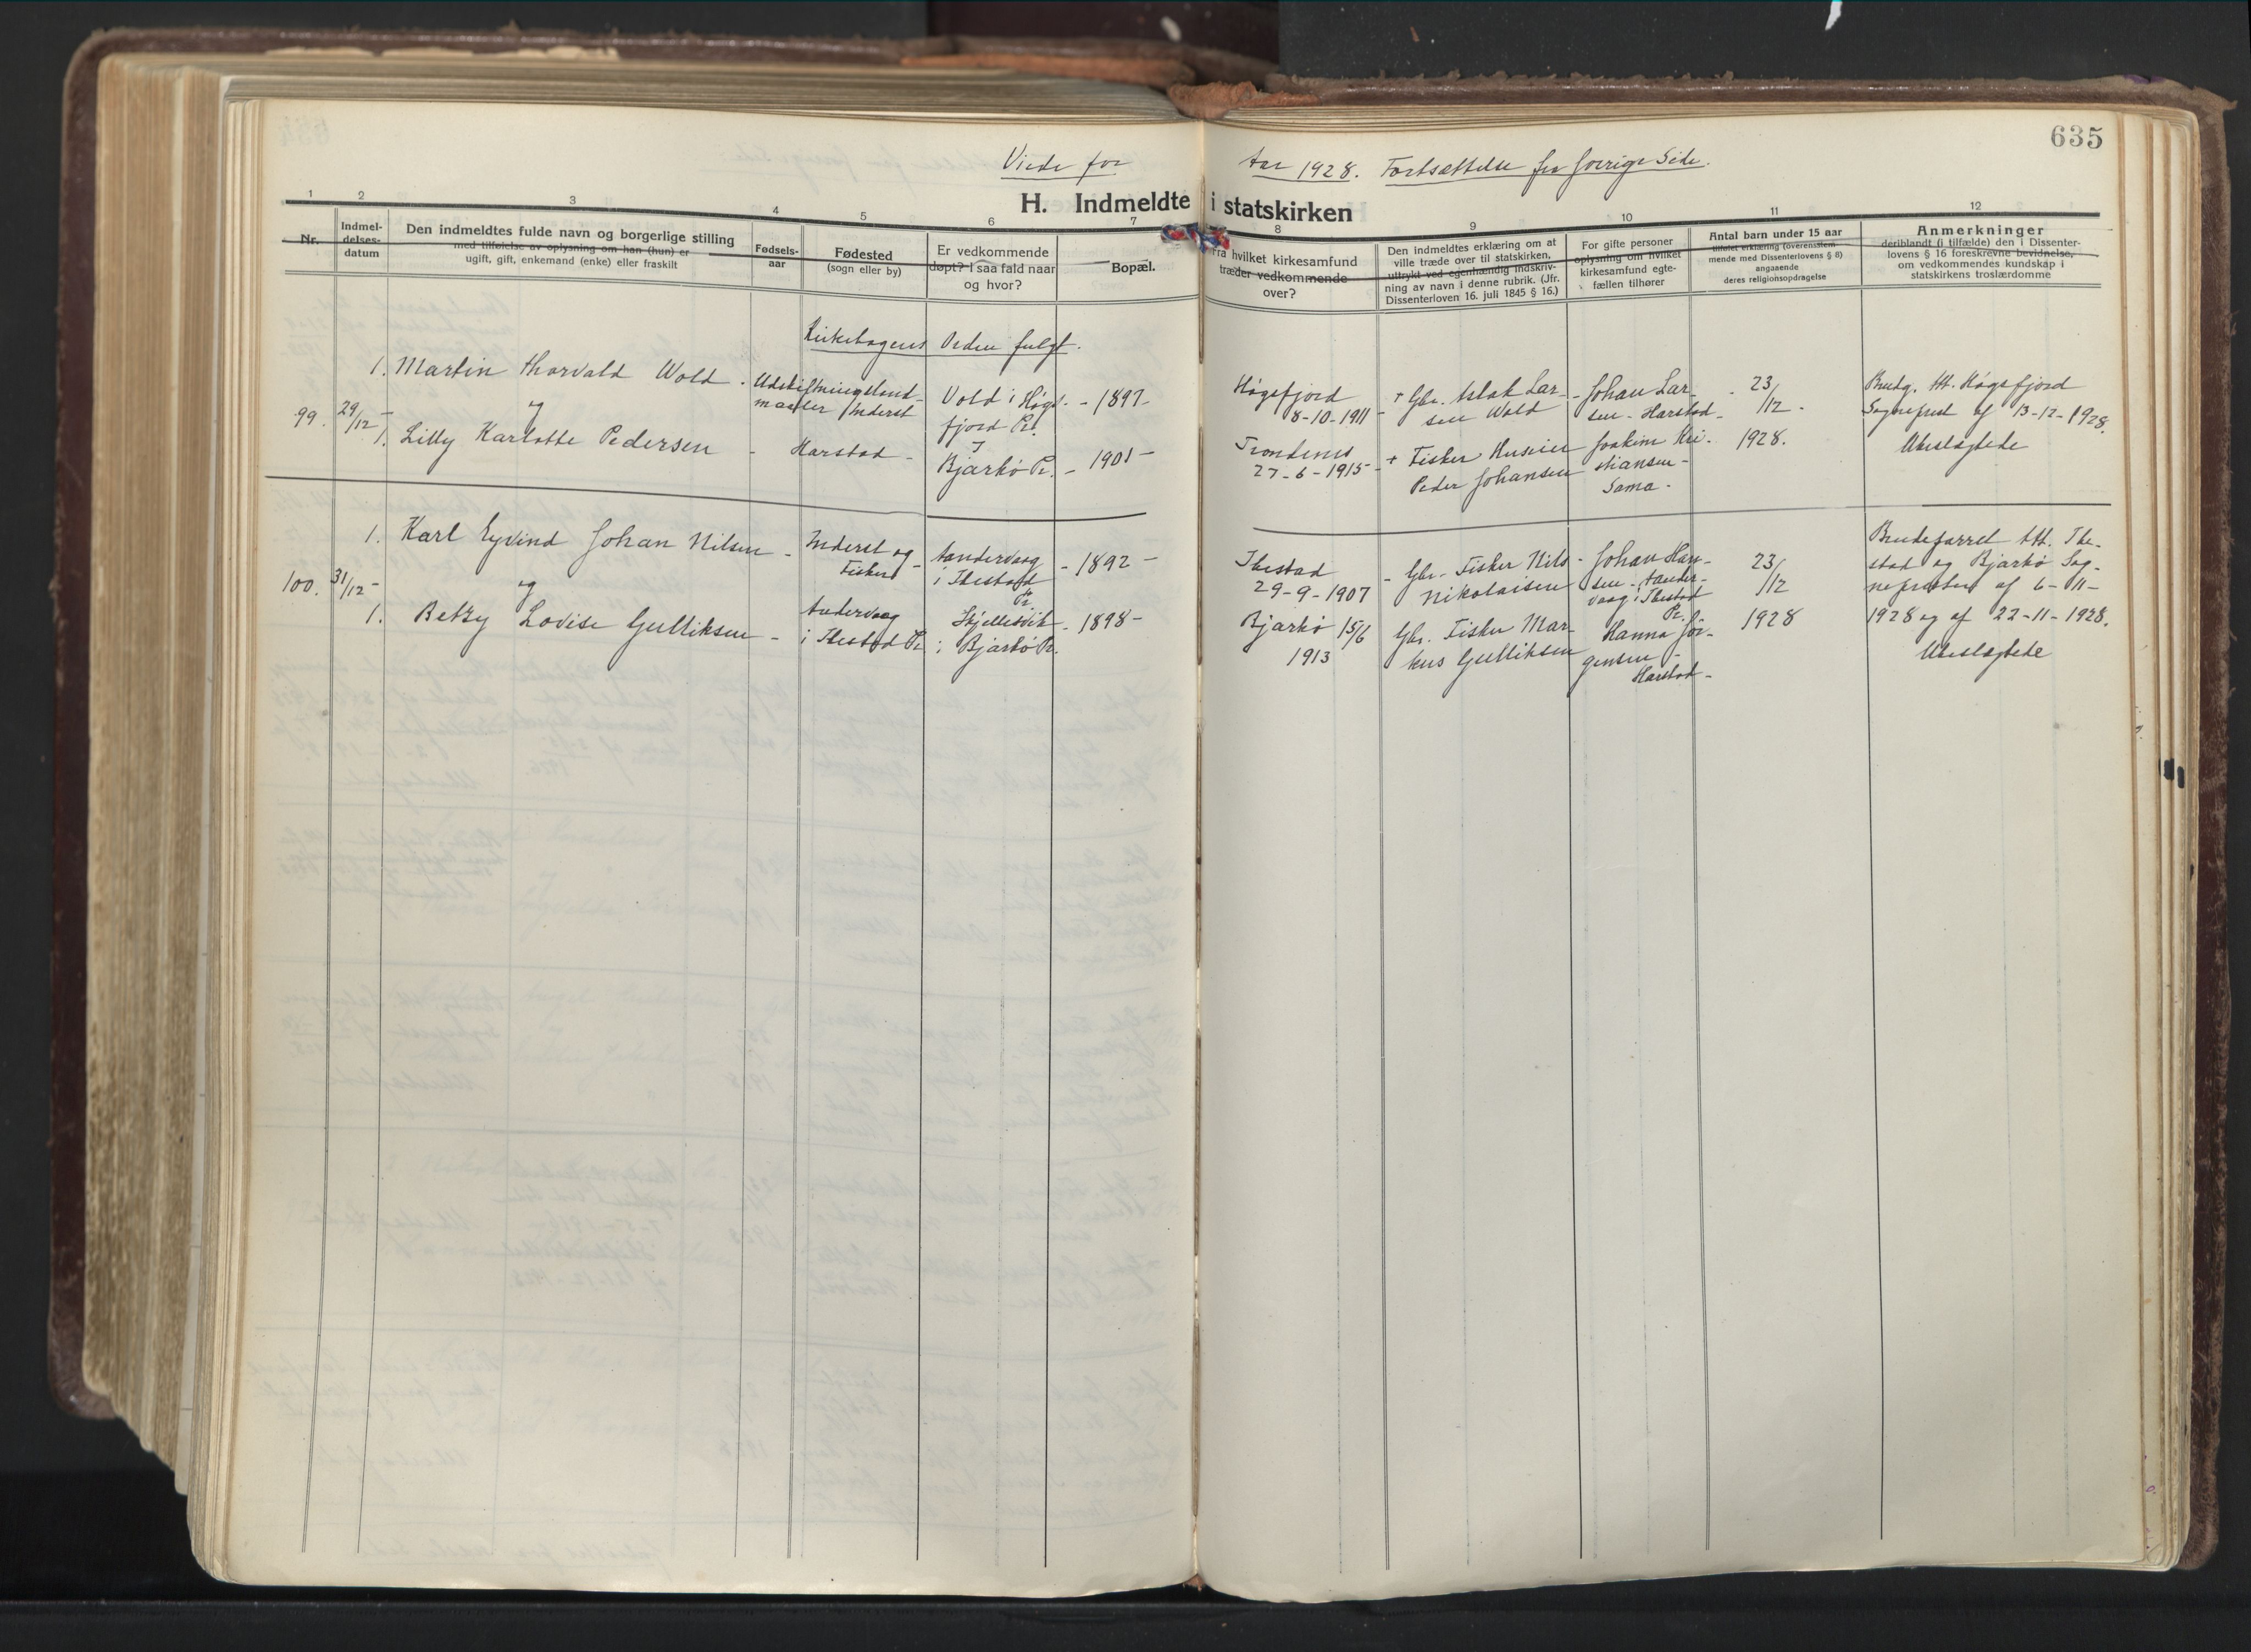 635
Viede for Aar 1928. Fortsættelse fra forrige Side.
H. Indmeldte i statskirken
1 2 3 4 5 6 7 8 9 10 11 12
Nr.
Indmel-
delses-
datum
Den indmeldtes fulde navn og borgerlige stilling
med tilføielse av oplysning om han (hun) er
ugift, gift, enkemand (enke) eller fraskilt
Fødsels-
aar
Fødested
(sogn eller by)
Er vedkommende
døpt? I saa fald naar
og hvor?
Bopæl.
Fra hvilket kirkesamfund
træder vedkommende
over?
Den indmeldtes erklæring om at
ville træde over til statskirken,
uttrykt ved egenhændig indskriv-
ning av navn i denne rubrik. (Jfr.
Dissenterloven 16. juli 1845 § 16.)
For gifte personer
oplysning om hvilket
kirkesamfund egte-
fællen tilhører
Antal barn under 15 aar
tilføiet erklæring (overensstem-
mende med Dissenterlovens § 8)
angaaende
deres religionsopdragelse
Anmerkninger
deriblandt (i tilfælde) den i Dissenter-
lovens § 16 foreskrevne bevidnelse,
om vedkommendes kundskap i
statskirkens troslærdomme
Kirkebogens Orden fulgt.
99. 29/12 -
1. Martin Thorvald Wold -
og
1. Lilly Karlotte Pedersen -
Udskiftningsland-
maaler / Inderst
Harstad -
Vold i Høgs-
fjord Pr.
Bjarkö Pr. -
- 1897 -
1901 -
Högsfjord
8-10-1911 -
Trondenes
27-6-1915 -
+ Gbr. Aslak Lar-
sen Wold
+ Fisker Huseier
Peder Johansen
- Johan Lar-
sen - Harstad -
Joakim Kri-
stiansen -
Sama -
23/12 -
1928.
Brudg. Att. Högsfjord
Sogneprest af 13-12-1928.
Ubeslægtede
100. 31/12 -
1. Karl Eyvind Johan Nilsen -
og
1. Betzy Lovise Gulliksen -
Inderst og
Fisker -
Aandervaag
i Ibestad Pr.
Aandervaag
i Ibestad Pr.
Skjellesvik
i Bjarkö Pr.
- 1892 -
- 1898 -
Ibestad
29-9-1907
Bjarkö 15/6
1913
- Gbr. Fisker Nils
Nikolaisen
Gbr. Fisker Mar-
kus Gulliksen
- Johan Han-
sen - Aander-
vaag i Ibestad
Pr.
Hanna Jör-
gensen -
Harstad -
23/12
1928
Brudeparret Att. Ibe-
stad og Bjarkö Sog-
neprester af 6-11-
1928 og af 22-11-1928.
Ubeslægtede